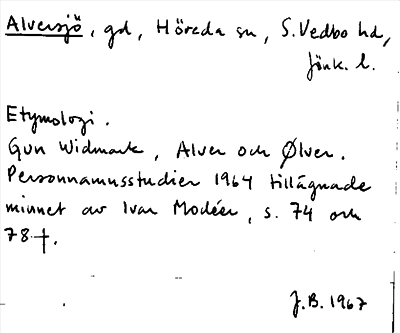 Alversjö, gd, Höreda sn, S. Vedbo hd,
Jönk. l.
Etymologi.
Gun Widmark, Alver och Ølver.
Personnamnsstudier 1964 tillägnade
minnet av Ivar Modéer, s. 74 och
78 f.
J.B. 1967